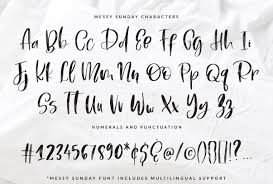 MESSY SUNDAY CHARACTERS
Aa Bb Cc Dd Ee Ff Gg Hh Ii
Jj Kk Ll Mm Nn Oo Pp Qq Rr
Ss Tt Uu Vv Ww Xx Yy Zz
NUMERALS AND PUNCTUATION
#1234567890*¢$€!?
*MESSY SUNDAY FONT INCLUDES MULTILINGUAL SUPPORT